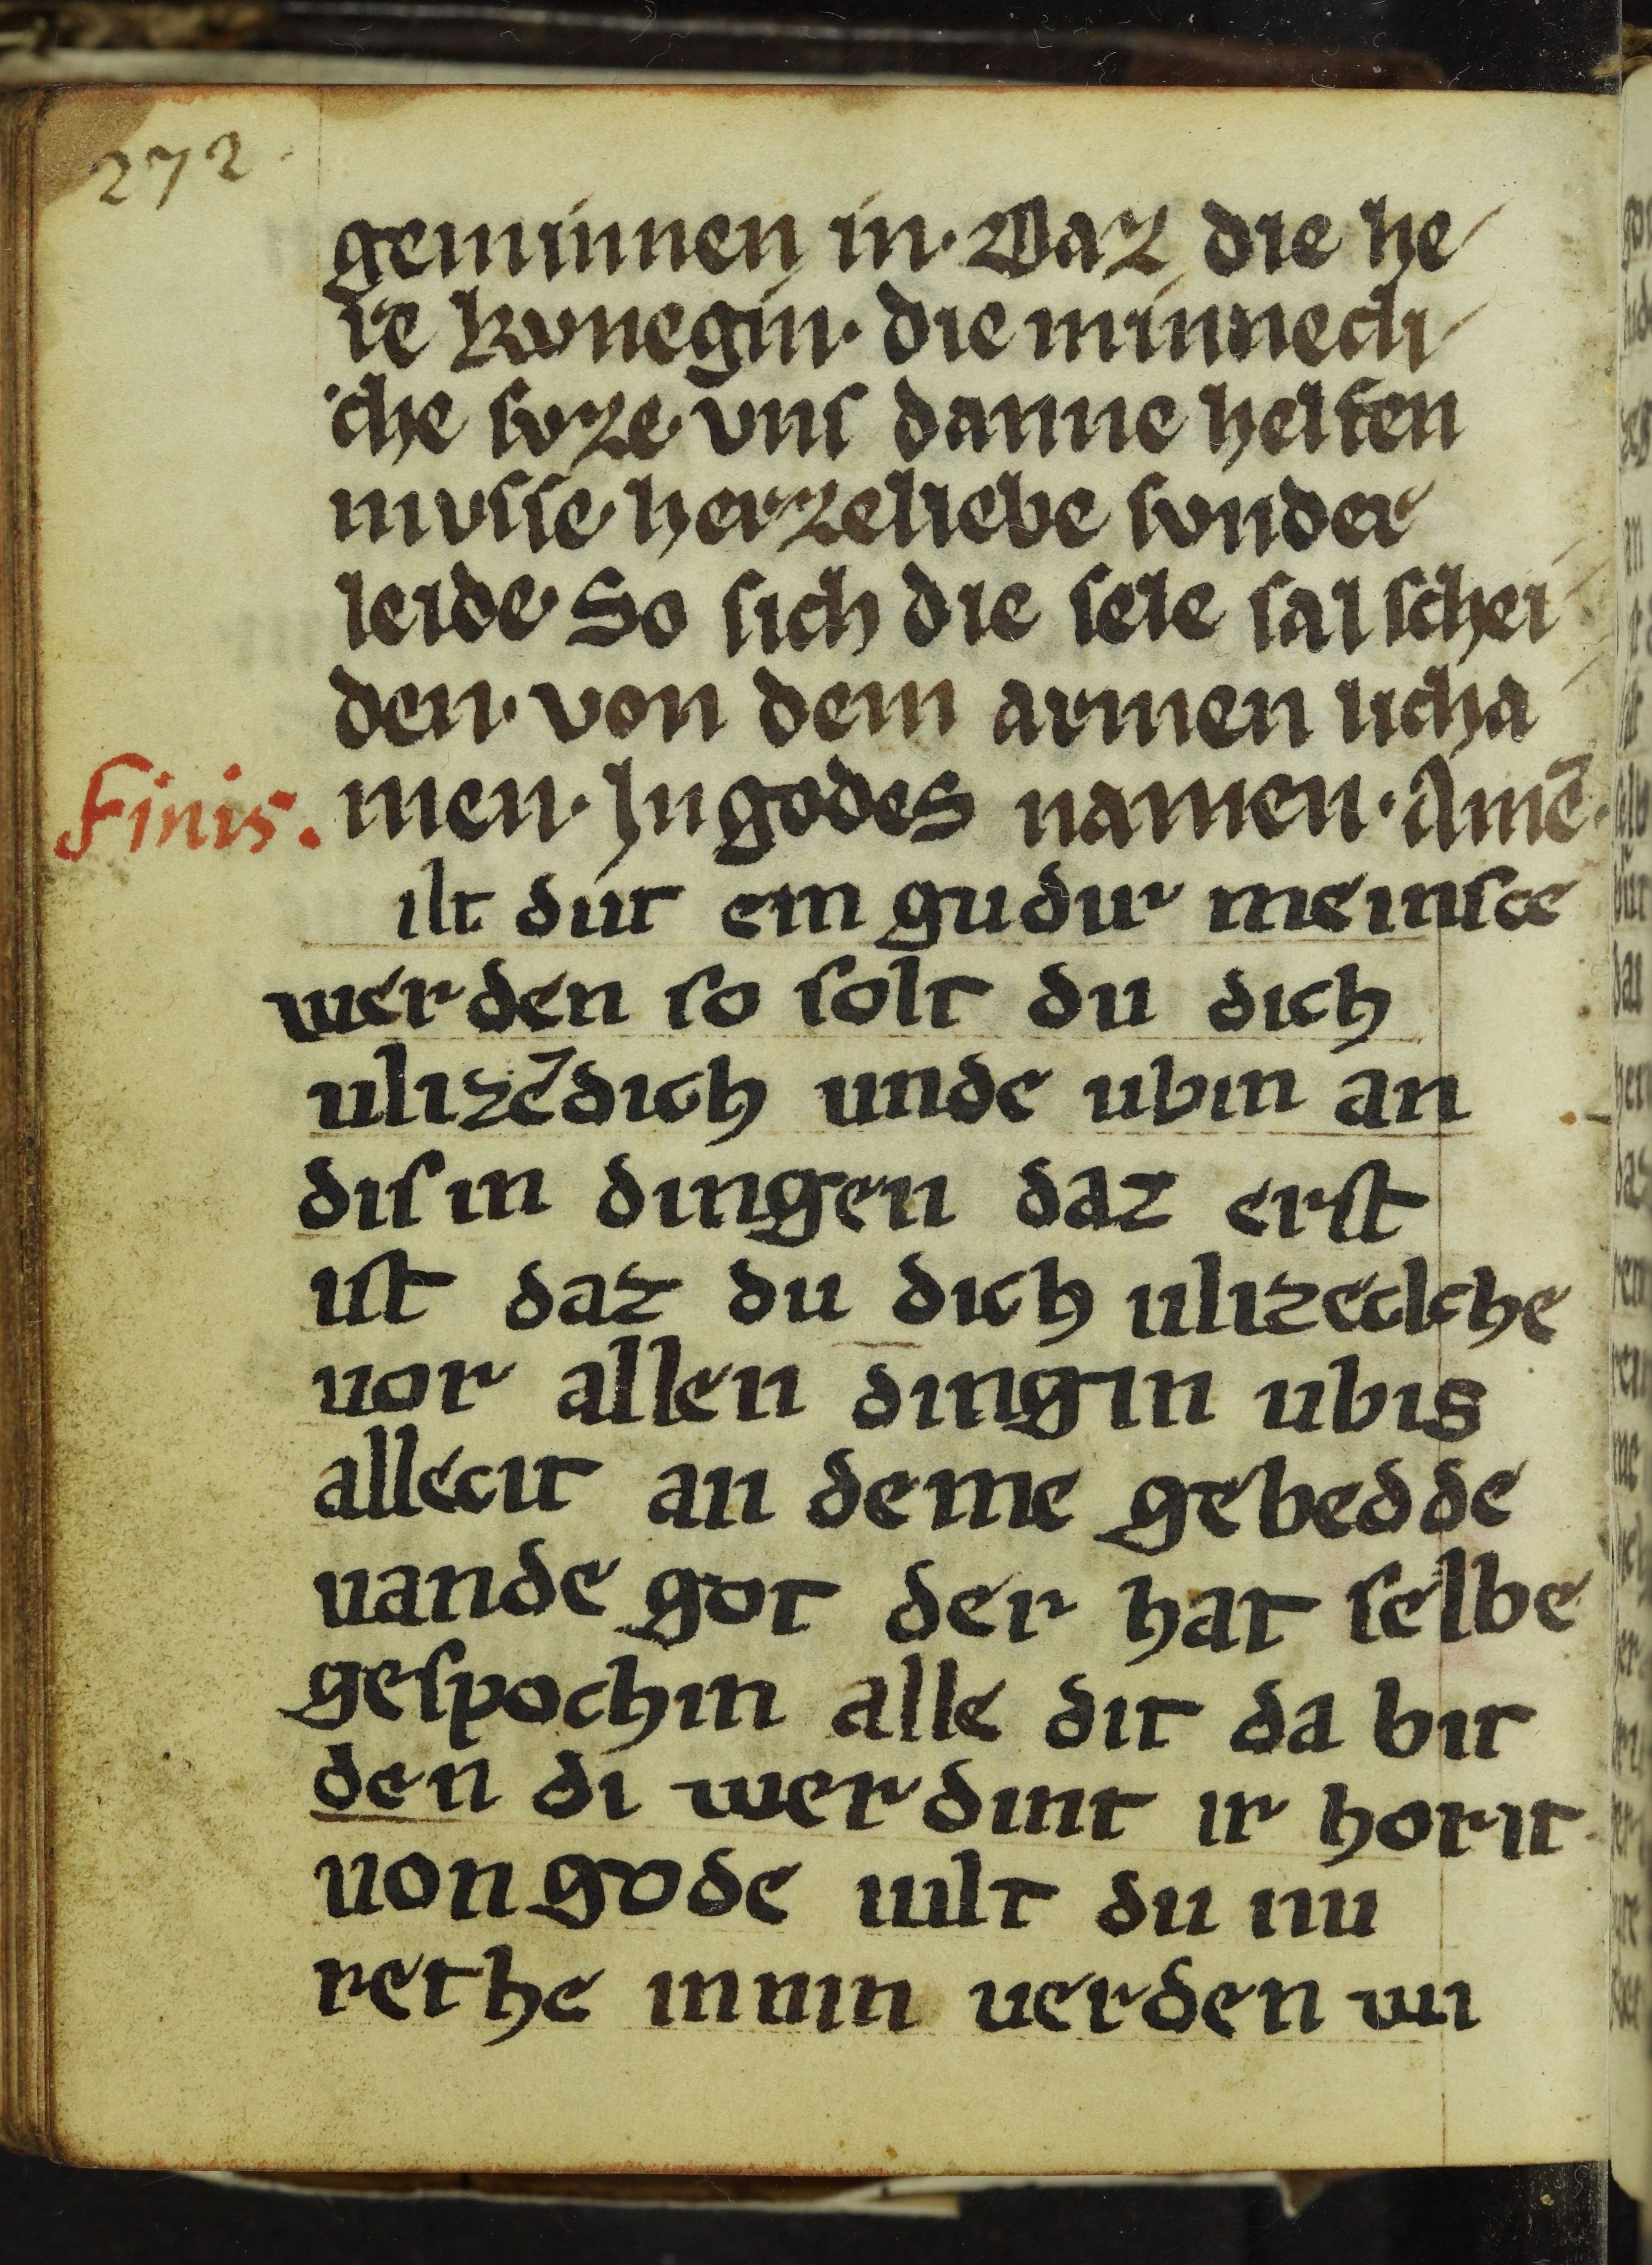 272.
geminnen in. Daz die he
re kvnegin. die minnecli
che svze. vnſ danne helfen
mvſſe. herzeliebe ſvnder
leide. So ſich die ſele ſal ſchei
den. von dem armen licha
Finis. men. In godes namen. Amē.
ilt dut ein gudur meinſce
werden ſo ſolt du dich
ulizēdich unde ubin an
diſin dingen daz erſt
iſt daz du dich ulizeclche
uor allen dingin ubis
allecit an deme gebedde
uande got der hat ſelbe
geſpochin alle dit da bit
den di werdint ir horit
uon gode uilt du nu
rethe innin uerden wi